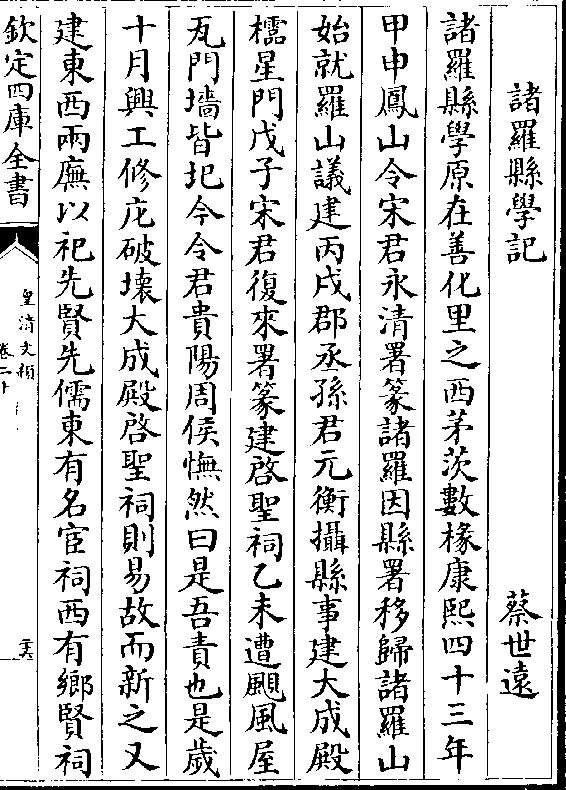 諸羅縣學記
蔡世遠
諸羅縣學原在善化里之西茅茨數椽康熙四十三年
甲申鳳山令宋君永清署篆諸羅因縣署移歸諸羅山
始就羅山議建丙戌郡丞孫君元衡攝縣事建大成殿
櫺星門戊子宋君復來署篆建啓聖祠乙未遭颶風屋
瓦門墻皆圮今令君貴陽周侯憮然曰是吾責也是歲
十月興工修庀破壊大成殿啓聖祠則易故而新之又
建東西兩廡以祀先賢先儒東有名宦祠西有鄉賢祠
欽定四庫全書
皇清文穎
卷二十
二六